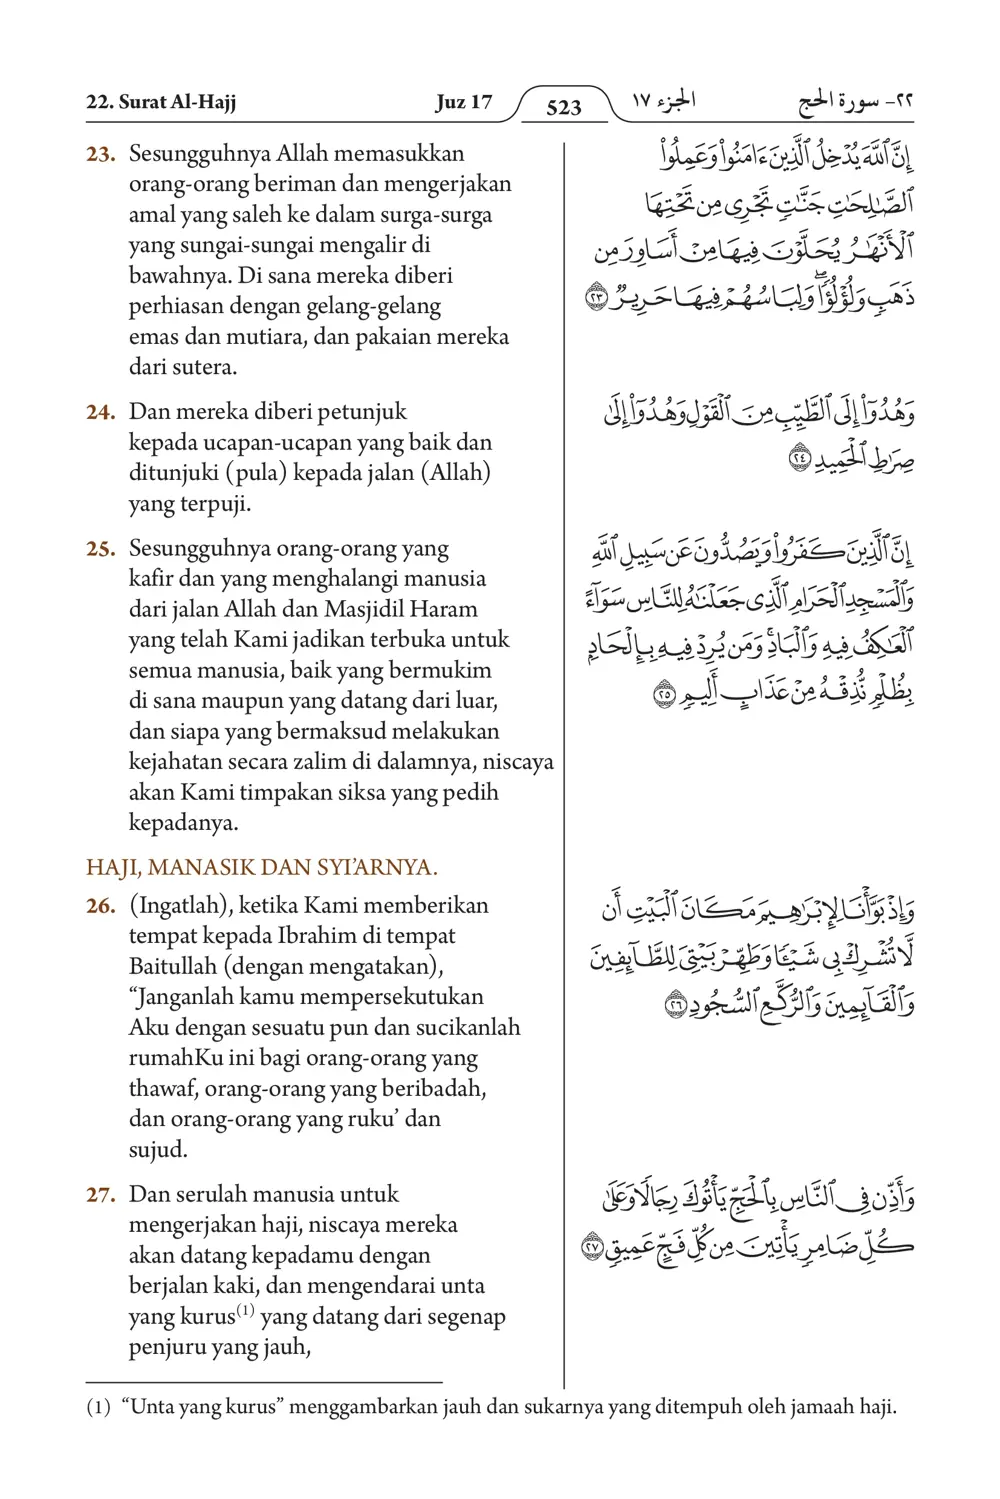 22. Surat Al-Hajj
Juz 17
523
الجزء ١٧
٢٢- سورة الحج
23. Sesungguhnya Allah memasukkan
orang-orang beriman dan mengerjakan
amal yang saleh ke dalam surga-surga
yang sungai-sungai mengalir di
bawahnya. Di sana mereka diberi
perhiasan dengan gelang-gelang
emas dan mutiara, dan pakaian mereka
dari sutera.
إِنَّ ٱللَّهَ يُدْخِلُ ٱلَّذِينَ ءَامَنُوا۟ وَعَمِلُوا۟
ٱلصَّـٰلِحَـٰتِ جَنَّـٰتٍ تَجْرِى مِن تَحْتِهَا
ٱلْأَنْهَـٰرُ يُحَلَّوْنَ فِيهَا مِنْ أَسَاوِرَ مِن
ذَهَبٍ وَلُؤْلُؤًا ۖ وَلِبَاسُهُمْ فِيهَا حَرِيرٌ ٢٣
24. Dan mereka diberi petunjuk
kepada ucapan-ucapan yang baik dan
ditunjuki (pula) kepada jalan (Allah)
yang terpuji.
وَهُدُوٓا۟ إِلَى ٱلطَّيِّبِ مِنَ ٱلْقَوْلِ وَهُدُوٓا۟ إِلَىٰ
صِرَٰطِ ٱلْحَمِيدِ ٢٤
25. Sesungguhnya orang-orang yang
kafir dan yang menghalangi manusia
dari jalan Allah dan Masjidil Haram
yang telah Kami jadikan terbuka untuk
semua manusia, baik yang bermukim
di sana maupun yang datang dari luar,
dan siapa yang bermaksud melakukan
kejahatan secara zalim di dalamnya, niscaya
akan Kami timpakan siksa yang pedih
kepadanya.
إِنَّ ٱلَّذِينَ كَفَرُوا۟ وَيَصُدُّونَ عَن سَبِيلِ ٱللَّهِ
وَٱلْمَسْجِدِ ٱلْحَرَامِ ٱلَّذِى جَعَلْنَـٰهُ لِلنَّاسِ سَوَآءً
ٱلْعَـٰكِفُ فِيهِ وَٱلْبَادِ ۚ وَمَن يُرِدْ فِيهِ بِإِلْحَادٍۭ
بِظُلْمٍ نُّذِقْهُ مِنْ عَذَابٍ أَلِيمٍ ٢٥
HAJI, MANASIK DAN SYI’ARNYA.
26. (Ingatlah), ketika Kami memberikan
tempat kepada Ibrahim di tempat
Baitullah (dengan mengatakan),
“Janganlah kamu mempersekutukan
Aku dengan sesuatu pun dan sucikanlah
rumahKu ini bagi orang-orang yang
thawaf, orang-orang yang beribadah,
dan orang-orang yang ruku’ dan
sujud.
وَإِذْ بَوَّأْنَا لِإِبْرَٰهِيمَ مَكَانَ ٱلْبَيْتِ أَن
لَّا تُشْرِكْ بِى شَيْـًٔا وَطَهِّرْ بَيْتِىَ لِلطَّآئِفِينَ
وَٱلْقَآئِمِينَ وَٱلرُّكَّعِ ٱلسُّجُودِ ٢٦
27. Dan serulah manusia untuk
mengerjakan haji, niscaya mereka
akan datang kepadamu dengan
berjalan kaki, dan mengendarai unta
yang kurus(1) yang datang dari segenap
penjuru yang jauh,
وَأَذِّن فِى ٱلنَّاسِ بِٱلْحَجِّ يَأْتُوكَ رِجَالًا وَعَلَىٰ
كُلِّ ضَامِرٍ يَأْتِينَ مِن كُلِّ فَجٍّ عَمِيقٍ ٢٧
(1) “Unta yang kurus” menggambarkan jauh dan sukarnya yang ditempuh oleh jamaah haji.